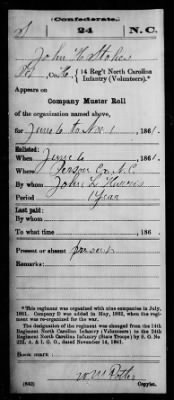 Confederate.
24 N.C.
John H Stokes
Co. H, { 14 Reg't North Carolina Infantry (Volunteers).*
Appears on
Company Muster Roll
of the organization named above,
for June 6 to Nov 1, 1861.
Enlisted:
When June 6, 1861.
Where Person Co N.C.
By whom John L Harris
Period 1 Year
Last paid:
By whom
To what time , 186 .
Present or absent present
Remarks:
*This regiment was organized with nine companies in July,
1861. Company D was added in May, 1862, when the regiment was reorganized for the war.
The designation of the regiment was changed from the 14th
Regiment North Carolina Infantry (Volunteers) to the 24th
Regiment North Carolina Infantry (State Troops) by S. O. No
222, A. & I. G. O., dated November 14, 1861.
Book mark:
(642) Copyist.